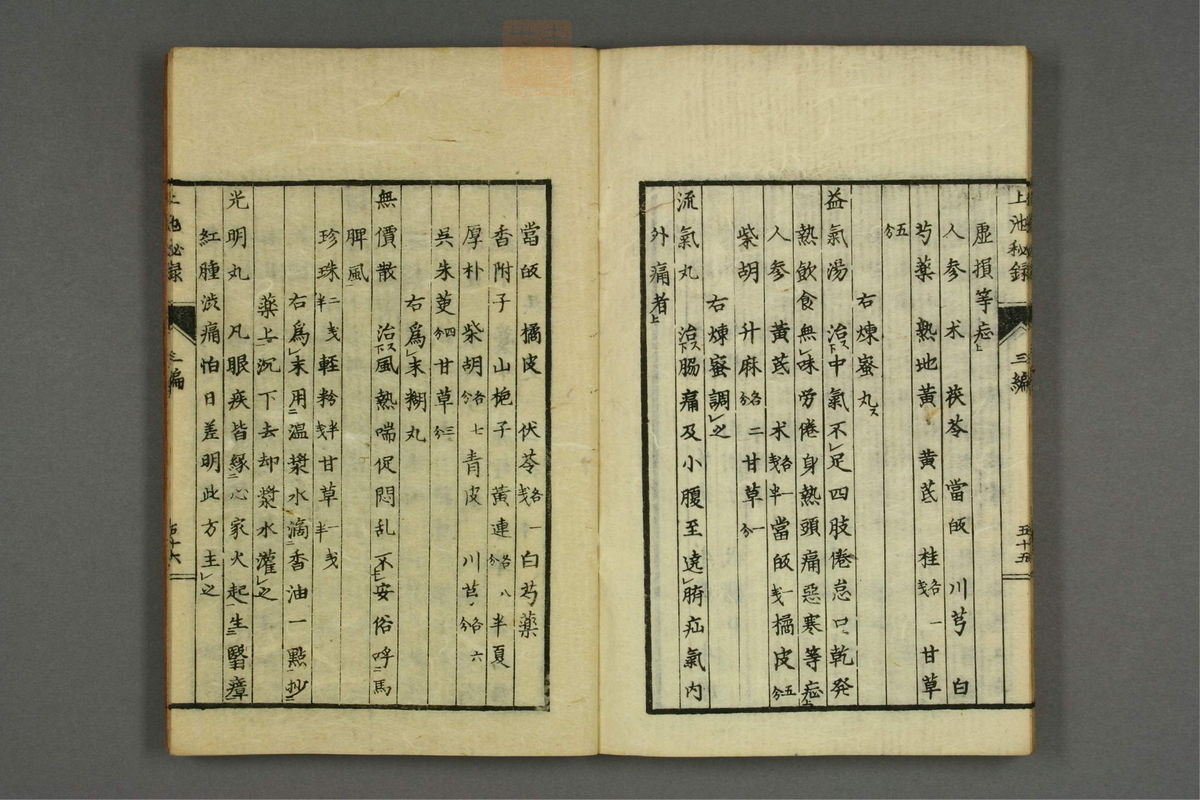 上池秘録
三編
五十五
虚損等症上
人参 术 茯苓 當皈 川芎 白
芍薬 熟地黄 黄芪 桂各一戔 甘草
五分
右煉蜜丸ス
益氣湯 治ス中氣不レ足四肢倦怠口乾発
熱飲食無レ味労倦身熱頭痛悪寒等症上
人参 黄芪 术各一戔半 當皈一戔 橘皮五分
柴胡 升麻各二分 甘草一分
右煉蜜調レ之
流氣丸 治ス下腸痛及小腹至遶レ臍疝氣内
外痛者上
當皈 橘皮 伏苓各一戔 白芍薬
香附子 山梔子 黄連各八分 半夏
厚朴 柴胡各七分 青皮 川芎各六分
呉朱萸四分 甘草三分
右爲レ末糊丸
無價散 治ス下風熱喘促悶乱不安俗呼二馬
脾風一
珍珠二戔半 輕粉半戔 甘草一戔半
右爲レ末用二温漿水一滴二香油一點一抄二
薬上一沉下去却漿水灌レ之
光明丸 凡眼疾皆縁二心家火起一生二翳瘴一
紅腫渋痛怕日差明此方主レ之
上池秘録
三編
五十六